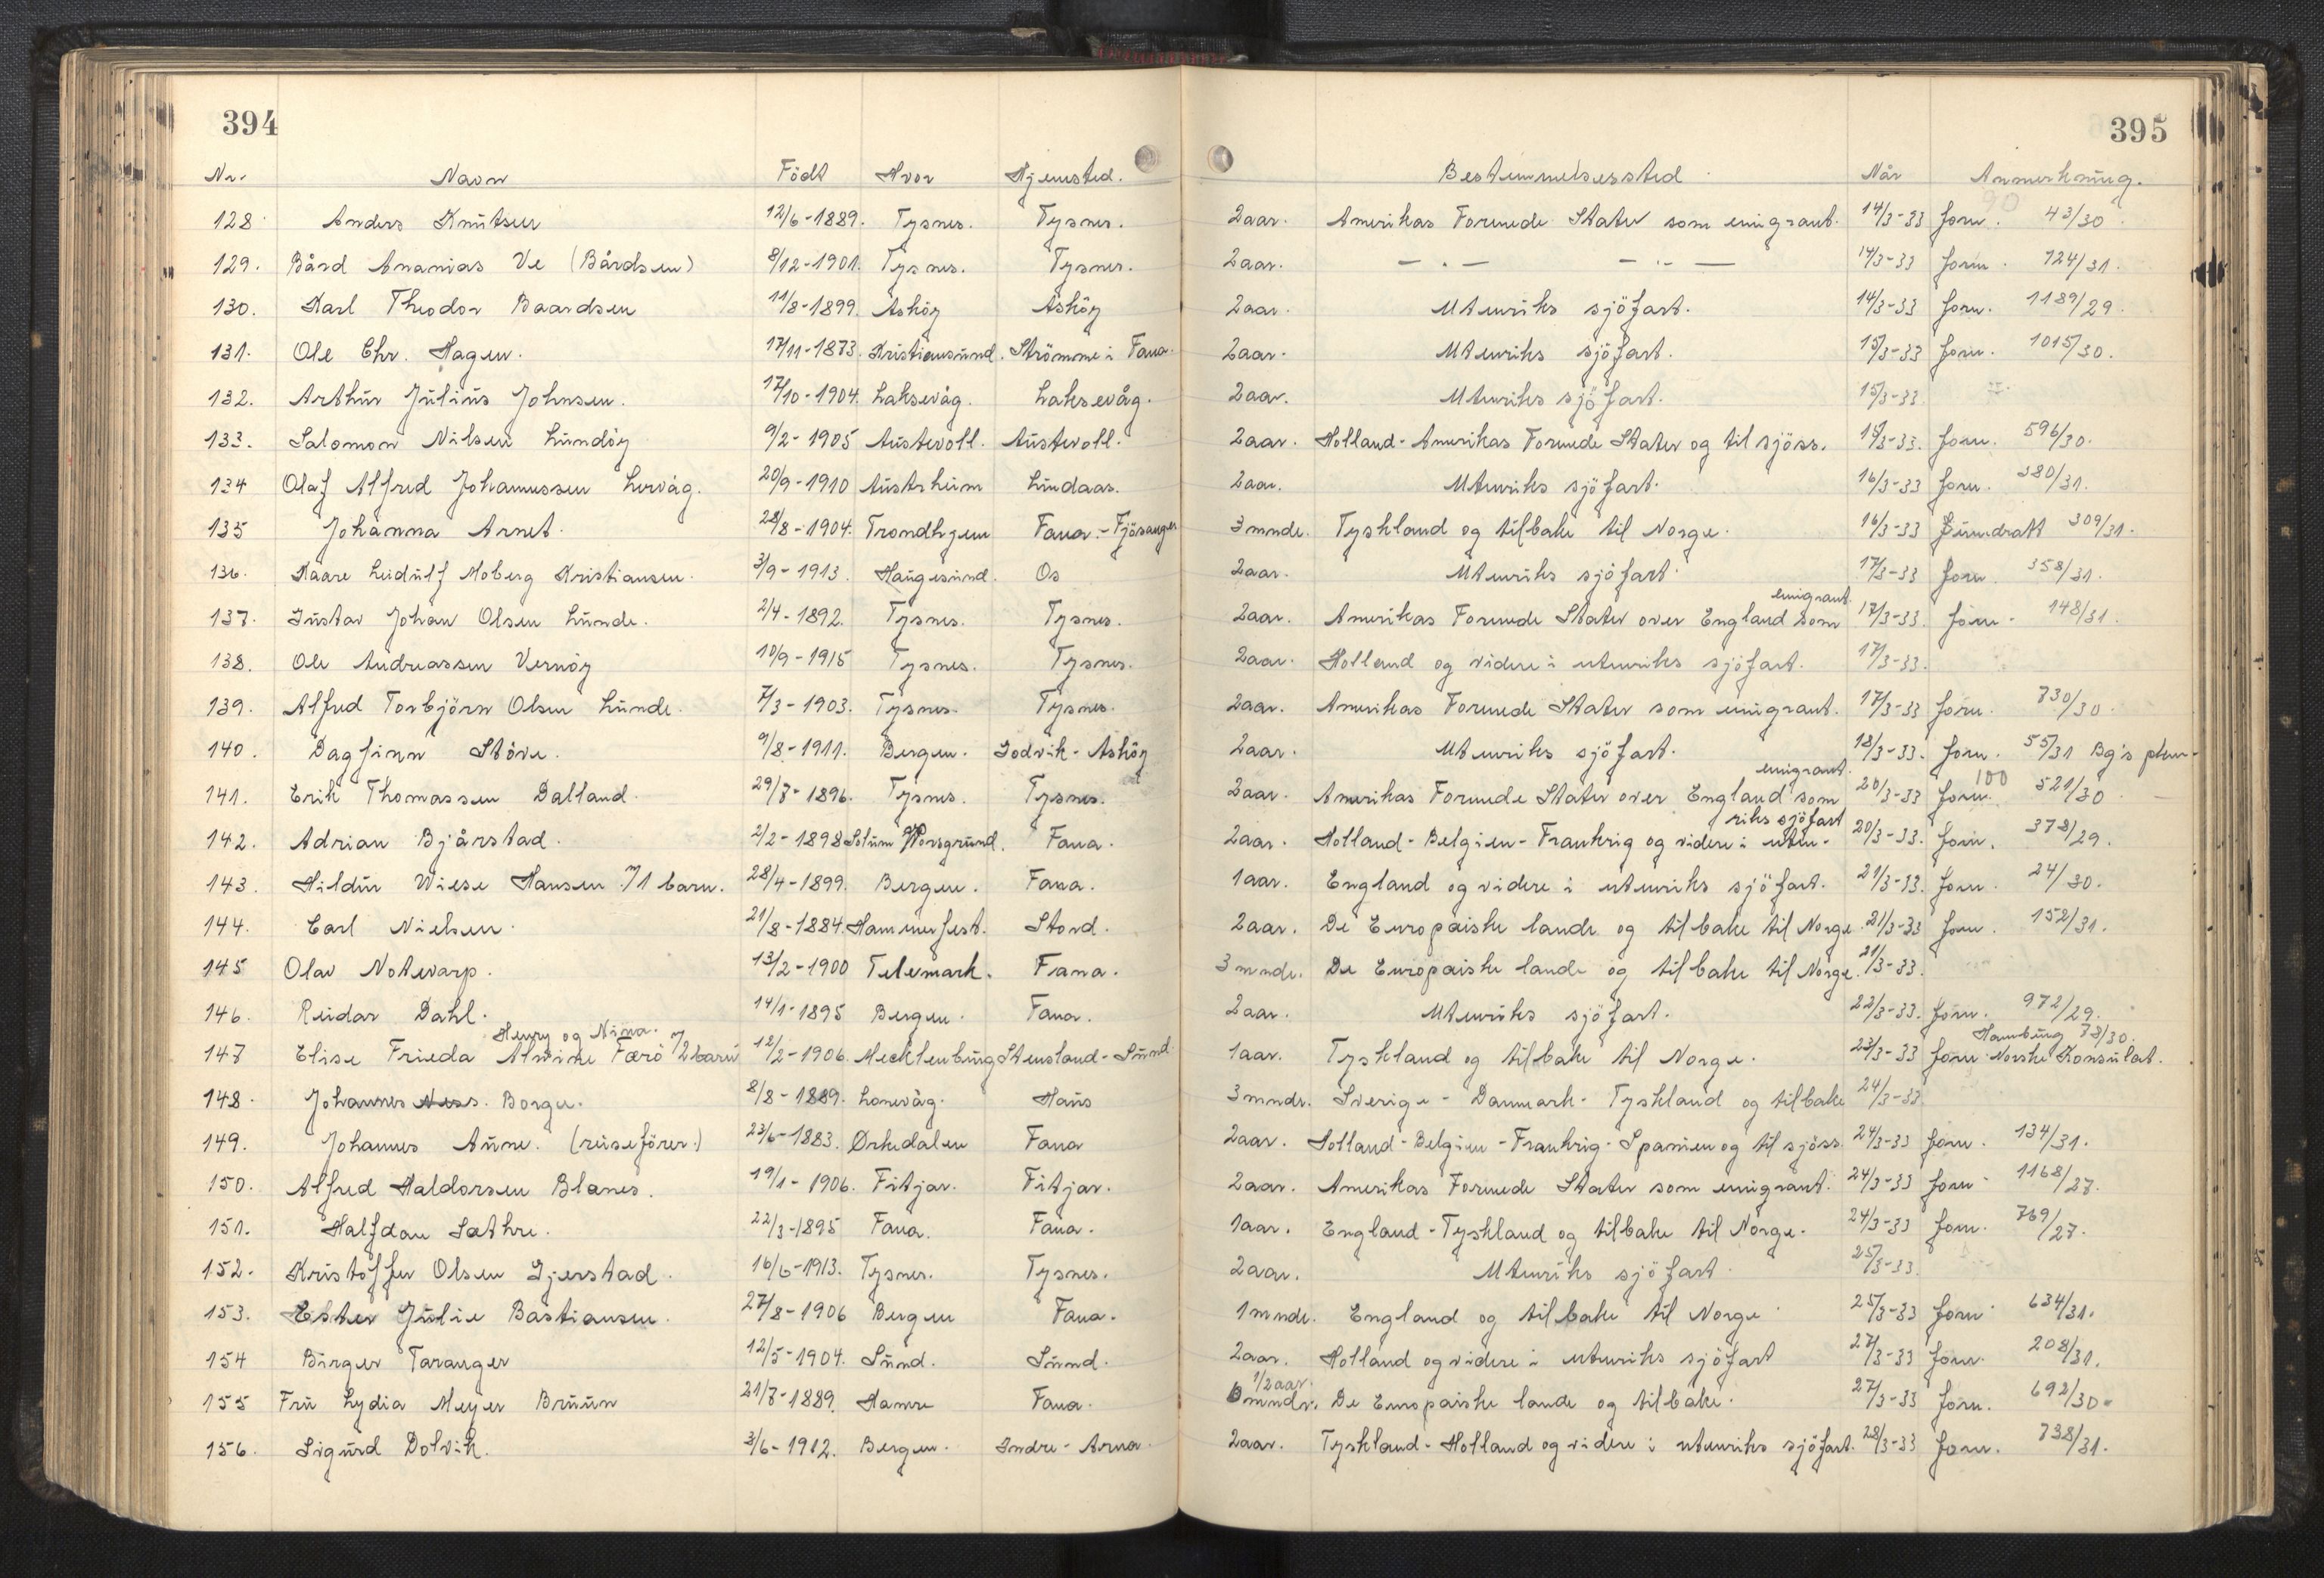 394
395
Nr. Navn Födt Hvor Hjemsted. Bestemmelsessted Når Anmerkning.
90
128 Anders Knutsen 12/6-1889. Tysnes. Tysnes. 2aar. Amerikas Forenede Stater som emigrant. 14/3-33 forn. 43/30.
129. Bård Ananias Ve (Bårdsen) 8/12-1901. Tysnes. Tysnes. 2aar. — . — — . — 14/3-33 forn. 724/31.
130. Karl Theodor Baardsen 11/8-1899. Askøy Askøy 2aar. Utenriks sjöfart. 14/3-33 forn. 1189/29.
131. Ole Chr. Hagen. 17/11-1873. Kristiansund. Strömme i Fana. 2aar. Utenriks sjöfart. 15/3-33 forn. 1015/30.
132. Arthur Julius Johnsen. 17/10-1904. Laksevåg. Laksevåg. 2aar. Utenriks sjöfart. 15/3-33.
133. Salomon Nilsen Lundöy 9/2-1905 Austevoll. Austevoll. 2aar. Holland-Amerikas Forenede Stater og til sjöss. 15/3-33. forn. 596/30.
134 Olaf Alfred Johannessen Lervåg. 20/9-1910 Austrheim Lindaas. 2aar. Utenriks sjöfart. 16/3-33 forn. 380/31.
135 Johanna Arnet. 28/8-1904. Trondhjem Fana.-Fjösanger 3 mnde. Tyskland og tilbake til Norge. 16/3-33 Inndratt 309/31.
136. Kaare Leidulf Moberg Kristiansen. 3/9-1913. Haugesund. Os 2aar. Utenriks sjöfart 17/3-33 forn. 358/31.
emigrant.
137. Gustav Johan Olsen Lunde. 2/4-1892. Tysnes. Tysnes. 2aar. Amerikas Forenede Stater over England som 17/3-33. forn. 148/31.
138. Ole Andreassen Vernöy 10/9-1915 Tysnes. Tysnes. 2aar. Holland og videre i utenriks sjöfart. 17/3-33.
139. Alfred Torbjörn Olsen Lunde. 7/3-1903. Tysnes. Tysnes. 2aar. Amerikas Forenede Stater som emigrant. 17/3-33 forn. 730/30.
140. Dagfinn Stöve. 9/8-1911. Bergen. Godvik-Askøy 2aar. Utenriks sjöfart. 18/3-33. forn. 55/31 Bg's pkm.
emigrant. 100
141. Erik Thomassen Dalland. 29/7-1896. Tysnes. Tysnes. 2aar. Amerikas Forenede Stater over England som 20/3-33 forn. 521/30
riks sjöfart
142. Adrian Bjårstad. 2/2-1898 Solum Porsgrund. Fana. 2aar. Holland-Belgien-Frankrig og videre i uten- 20/3-33. forn. 378/29.
143. Hildur Wiese Hansen 7/1 barn. 28/4-1899. Bergen. Fana. 1aar. England og videre i utenriks sjöfart. 21/3-33. forn. 24/30.
144. Carl Nielsen. 21/8-1884. Hammerfest. Stord. 2aar. De Europaiske lande og tilbake til Norge. 21/3-33 forn. 152/31.
145 Olav Notevarp. 13/2-1900 Telemark. Fana. 3 mnde. De Europaiske lande og tilbake til Norge. 21/3-33.
146. Reidar Dahl. 14/1-1895 Bergen. Fana. 2aar. Utenriks sjöfart. 22/3-33. forn. 972/29.
Henry og Nina. Hamburg 78/30.
147 Elise Frieda Alwine Færö 7/2 barn 12/2-1906. Mecklenburg Stensland-Sund 1aar. Tyskland og tilbake til Norge. 23/3-33 forn. Norske Konsulat.
148. Johannes Ness. Borge. 8/8-1889. Lonevåg. Haus 3 mndr. Sverige-Danmark-Tyskland og tilbake 24/3-33.
149. Johannes Aune. (reiseförer.) 23/6-1883. Ørkedalen Fana 2aar. Holland-Belgien-Frankrig-Spanien og til sjöss. 24/3-33 forn. 134/31.
150. Alfred Haldorsen Blanes. 19/1-1906. Fitjar. Fitjar. 2aar. Amerikas Forenede Stater som emigrant. 24/3-33 forn. 1168/27.
151. Halfdan Sæthre. 22/3-1895 Fana. Fana. 1aar. England-Tyskland og tilbake til Norge. 24/3-33 forn. 769/27.
152. Kristoffer Olsen Gjerstad. 16/6-1913. Tysnes. Tysnes. 2aar. Utenriks sjöfart. 25/3-33.
153. Ester Julie Bastiansen. 27/8-1906 Bergen Fana. 1 mnde. England og tilbake til Norge 25/3-33 forn 634/31.
154 Birger Taranger 12/5-1904. Sund. Sund. 2aar. Holland og videre i utenriks sjöfart 27/3-33 forn. 208/31.
1/2 aar.
155 Fru Lydia Meyer Bruun 21/7-1889. Hamre Fana. mndr. De Europaiske lande og tilbake. 27/3-33 forn. 692/30.
156. Sigurd Dolvik. 3/6-1912. Bergen. Indre-Arna. 2aar. Tyskland-Holland og videre i utenriks sjöfart. 28/3-33 forn. 738/31.